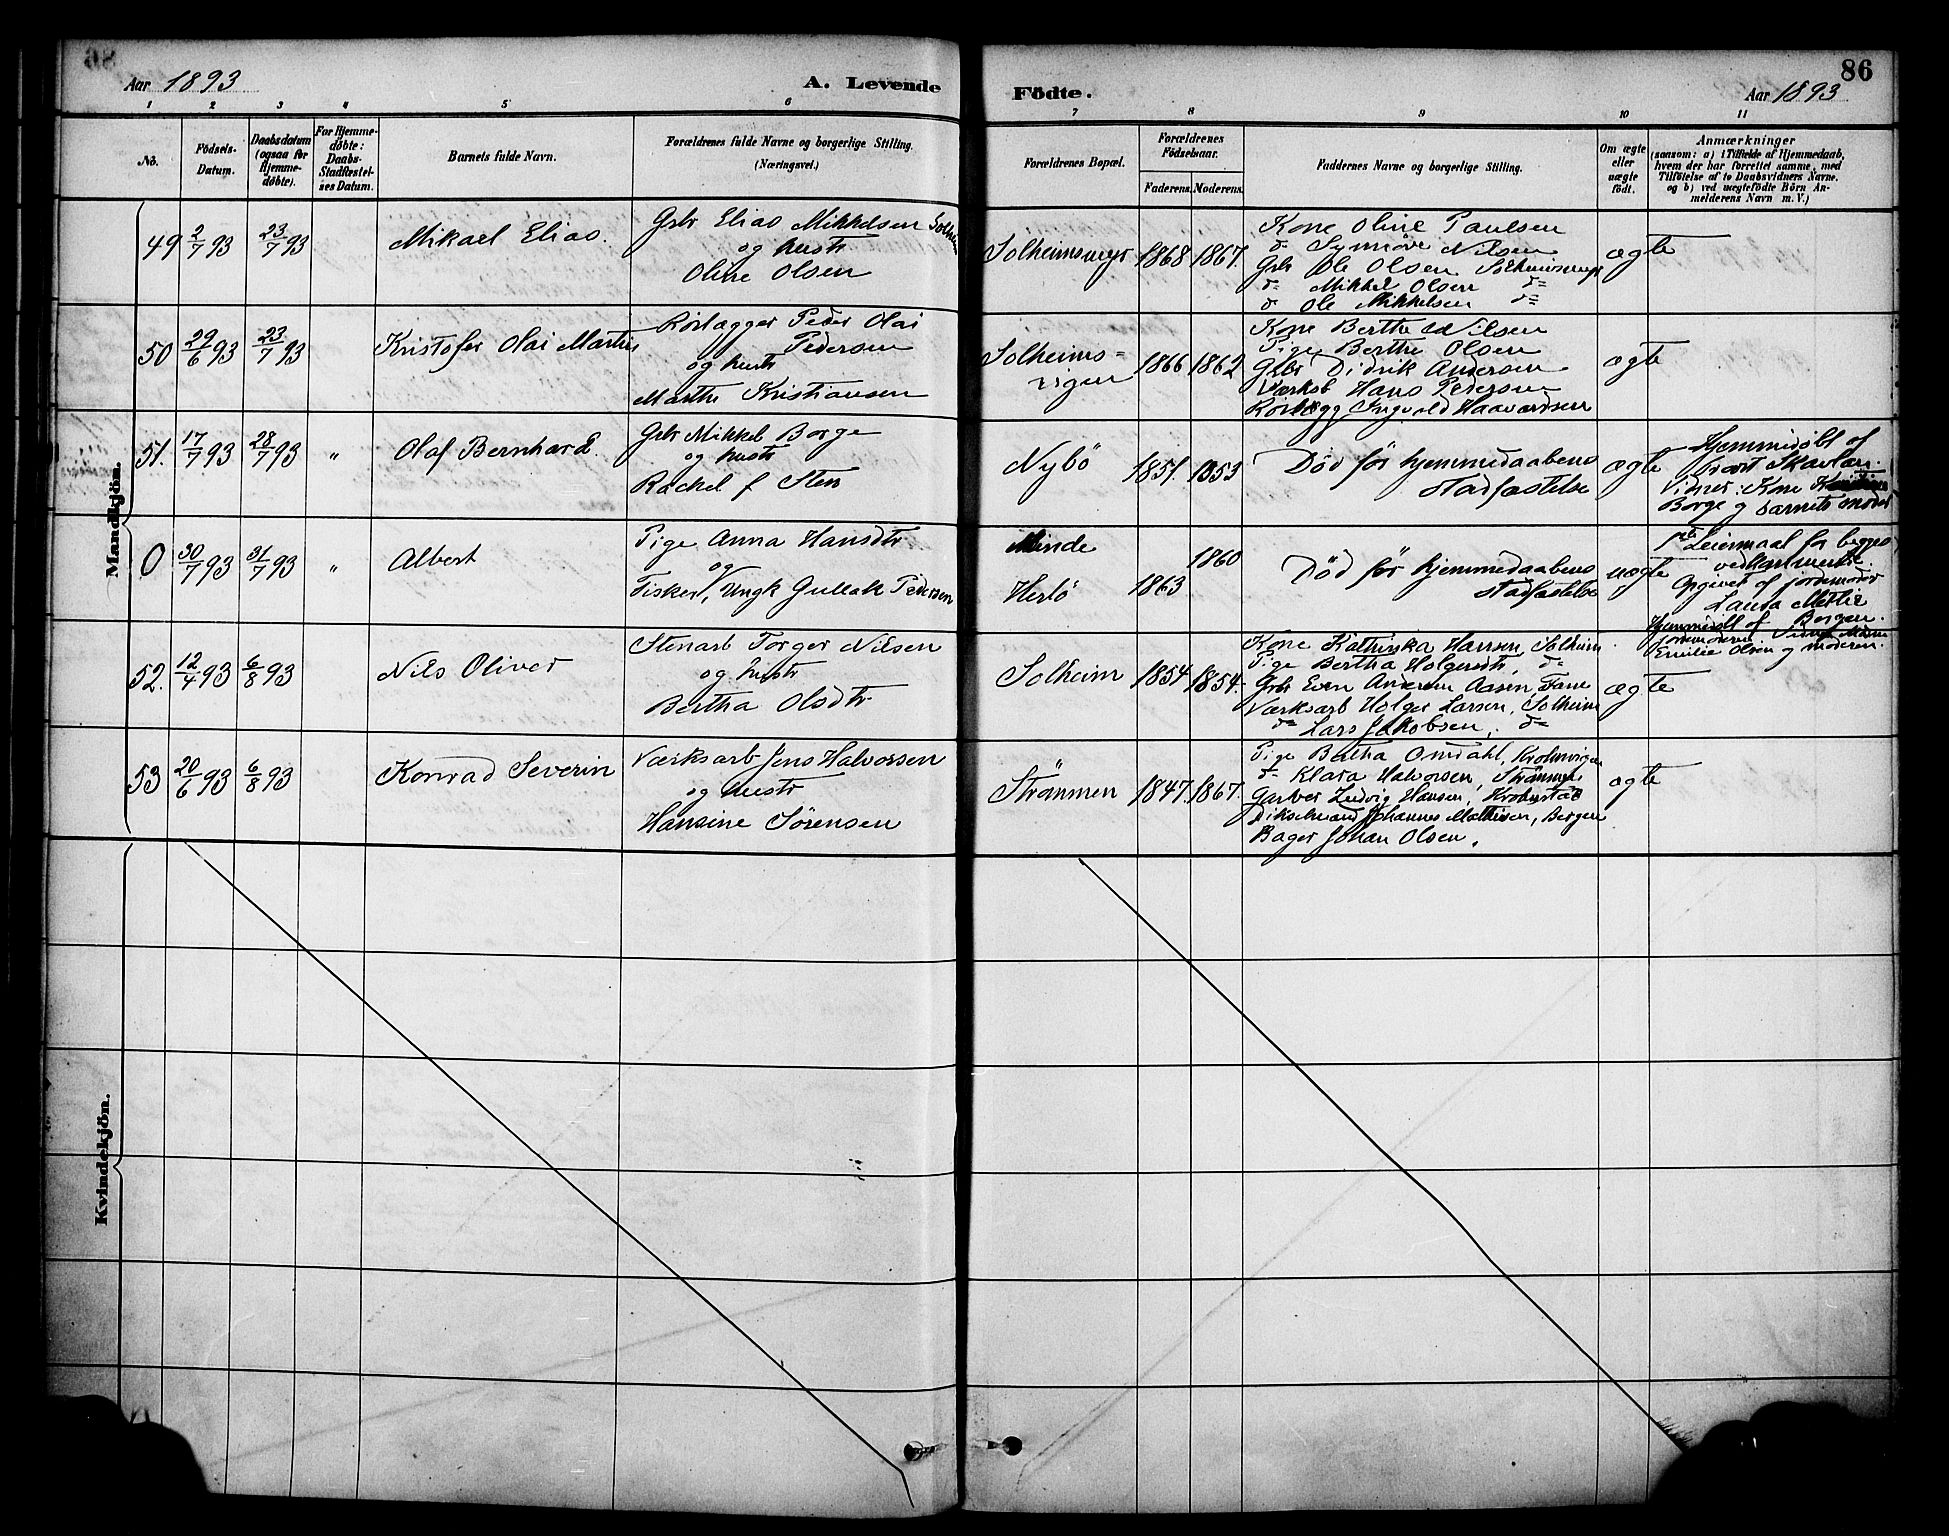 86
Aar 1893
A. Levende
Födte.
Aar 1893
1 2 3 4 5 6 7 8 9 10 11
No.
Födsels-
Datum.
Daabsdatum
(ogsaa for
Hjemme-
døbte).
For Hjemme-
døbte:
Daabs-
Stadfæstel-
ses Datum.
Barnets fulde Navn.
Forældrenes fulde Navne og borgerlige Stilling.
(Næringsvei.)
Forældrenes Bopæl.
Forældrenes
Födselsaar.
Faderens. Moderens.
Faddernes Navne og borgerlige Stilling.
Om ægte
eller
uægte
födt.
Anmærkninger
(saasom: a) i Tilfælde af Hjemmedaab,
hvem der har forrettet samme, med
Tilföielse af to Daabsvidners Navne,
og b) ved uægtefödte Börn An-
melderens Navn m. V.)
Mandkjön.
49 2/7 93 23/7 93
Mikael Elias.
Gbr Elias Mikkelsen
og hustr
Oline Olsen
Solheimsmyr 1868 1867.
Kone Oline Paulsen
do Synnöve Nilsen
Gbr Ole Olsen Solheimsmyr
do Mikkel Olsen do
do Ole Mikkelsen do
ægte
50 29/6 93 23/7 93
Kristofer Olai Martin
Rörlægger Peder Olai
Pedersen
og hustr
Marthe Kristiansen
Solheims=
vigen 1866 1862
Kone Berthe Nilsen
Pige Berthe Olsen
Gbr Didrik Andersen
Værksb Hans Pedersen
Rörlægg Ingvold Haavardsen
ægte
51. 17/7 93 28/7 93 "
Olaf Bernhard.
Gbr Mikkel Borge
og hustr
Rachel f Sten
Nybö 1851. 1853
Död för hjemmedaabens
stadfæstelse
ægte
Hjemmedöbt af
Skavlan.
Vidner: Kone
Borge og barnets moder
0 30/7 93 31/7 93 "
Albert
Pige Anna Hansdtr
og
Fisker, Ungk Gullak Pedersen
Minde
Herlö 1863 1860
Död för hjemmedaabens
stadfæstelse
uægte
1ste Leiermaal for begge
Opgivet af jordemoder
Laura
Hjemmedöbt af Bergen.
jordemoderen.
Emilie Olsen og moderen.
52. 12/4 93 6/8 93
Nils Oliver
Stenarb Torger Nilsen
og hustr
Bertha Olsdtr
Solheim 1854 1854.
Kone Kathinka Hansen, Solheim
Pige Bertha Holgersdtr, do
Gbr Even Andersen Aasen, Fane
Værksarb Holger Larsen, Solheim
do Lars Jakobsen, do
ægte
53 20/6 93 6/8 93
Konrad Severin
Værksarb Jens Halvorsen
og hustr
Hansine Sörensen
Strömmen 1847. 1867.
Pige Bertha Omdahl, Krohnvigen
do Klara Halvorsen, Strömmen
Garver Ludvig Hansen, Krohnstad
Johannes Mathisen, Bergen
Bager Johan Olsen.
ægte
Kvindekjön.